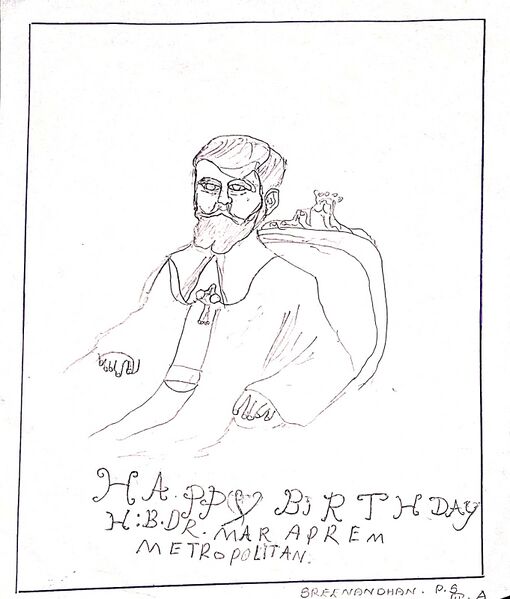 HAPPY BiRTHDAY
H:B.DR. MAR APREM
METROPOLITAN.
SREENANDHAN. P.S